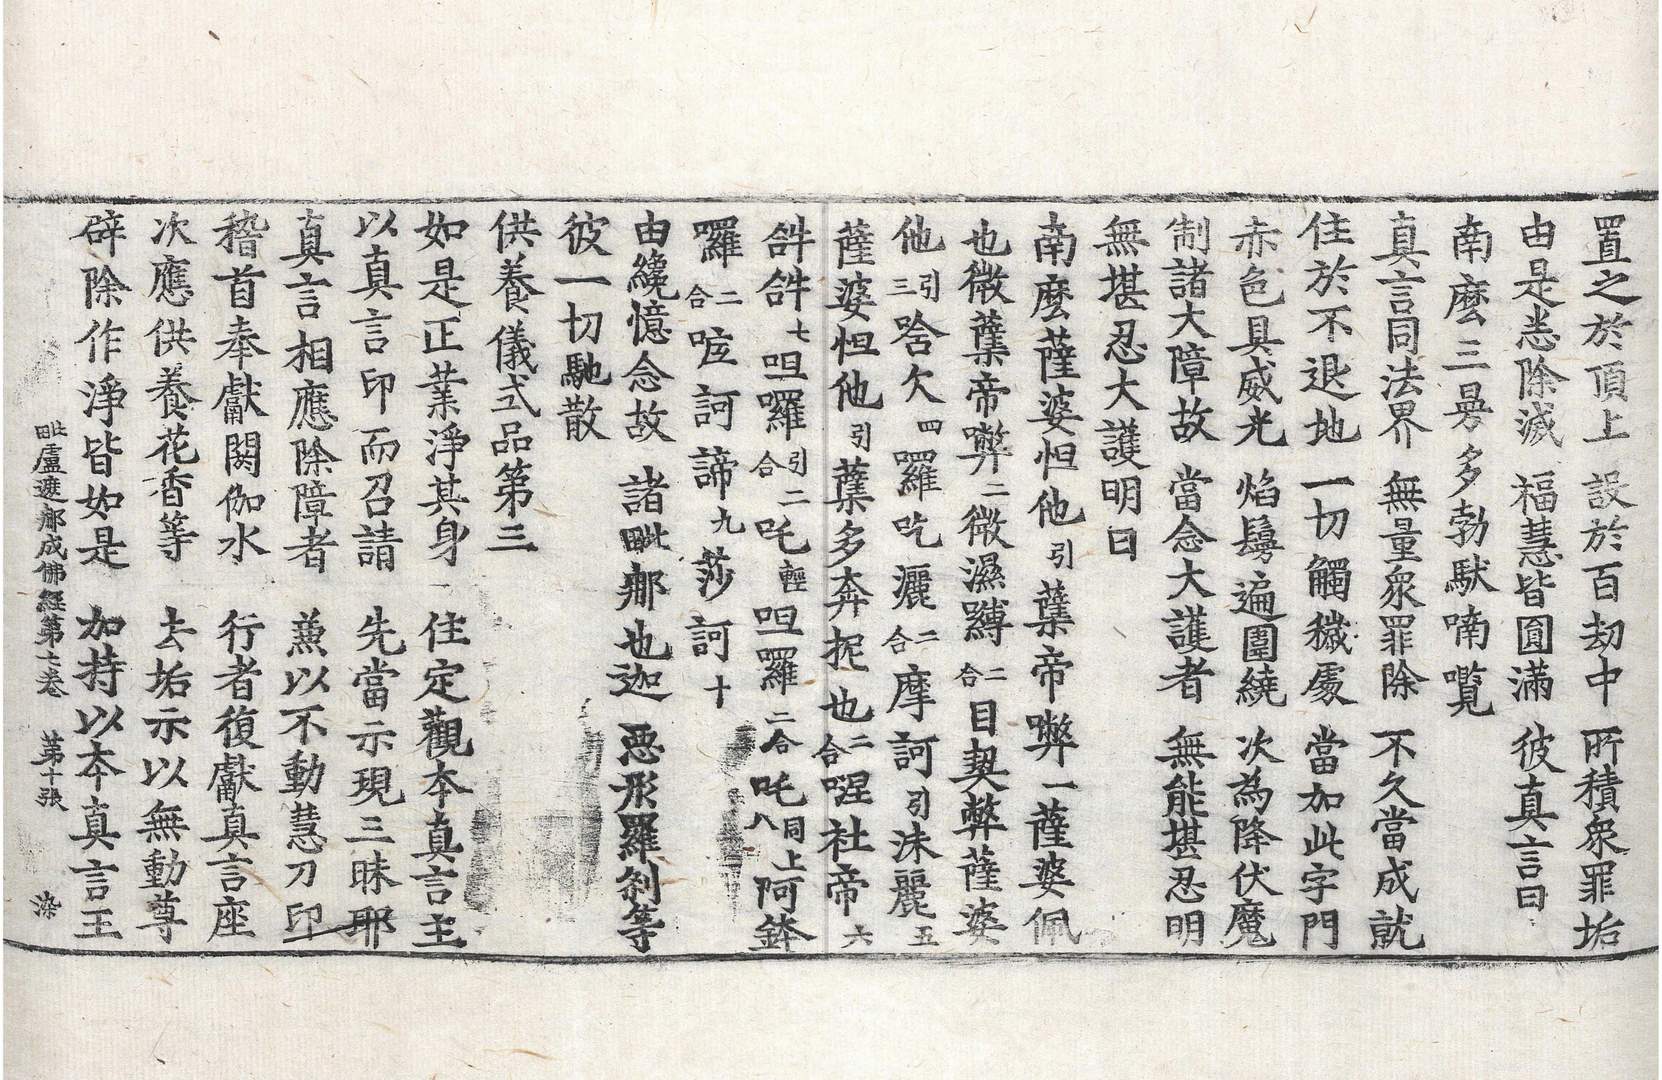 置之於頂上 設於百劫中 所積衆罪垢
由是悉除滅 福慧皆圓滿 彼真言曰
南麽三曼多勃馱喃嚂
真言同法界 無量衆罪除 不久當成就
住於不退地 一切觸穢處 當加此字門
赤色具威光 焰鬘遍圍繞 次為降伏魔
制諸大障故 當念大護者 無能堪忍明
無堪忍大護明曰
南麽薩婆怛他引蘖帝嚩一薩婆佩
也微蘖帝弊二微濕嚩二合目契弊薩婆
他引三唅欠四囉吃灑二合摩訶引沬麗五
薩婆怛他引蘖多奔抳也二合㘿社帝六
𤙖𤙖七呾囉引二合吒輕呾囉二合吒同上八阿鉢
囉二合㖶訶諦九莎訶十
由纔憶念故 諸毗那也迦 惡形羅剎等
彼一切馳散
供養儀式品第三
如是正業淨其身 住定觀本真言主
以真言印而召請 先當示現三昧耶
真言相應除障者 兼以不動慧刀印
稽首奉獻閼伽水 行者復獻真言座
次應供養花香等 去垢示以無動尊
辟除作淨皆如是 加持以本真言王
毗盧遮那成佛經第七卷 第十張 染